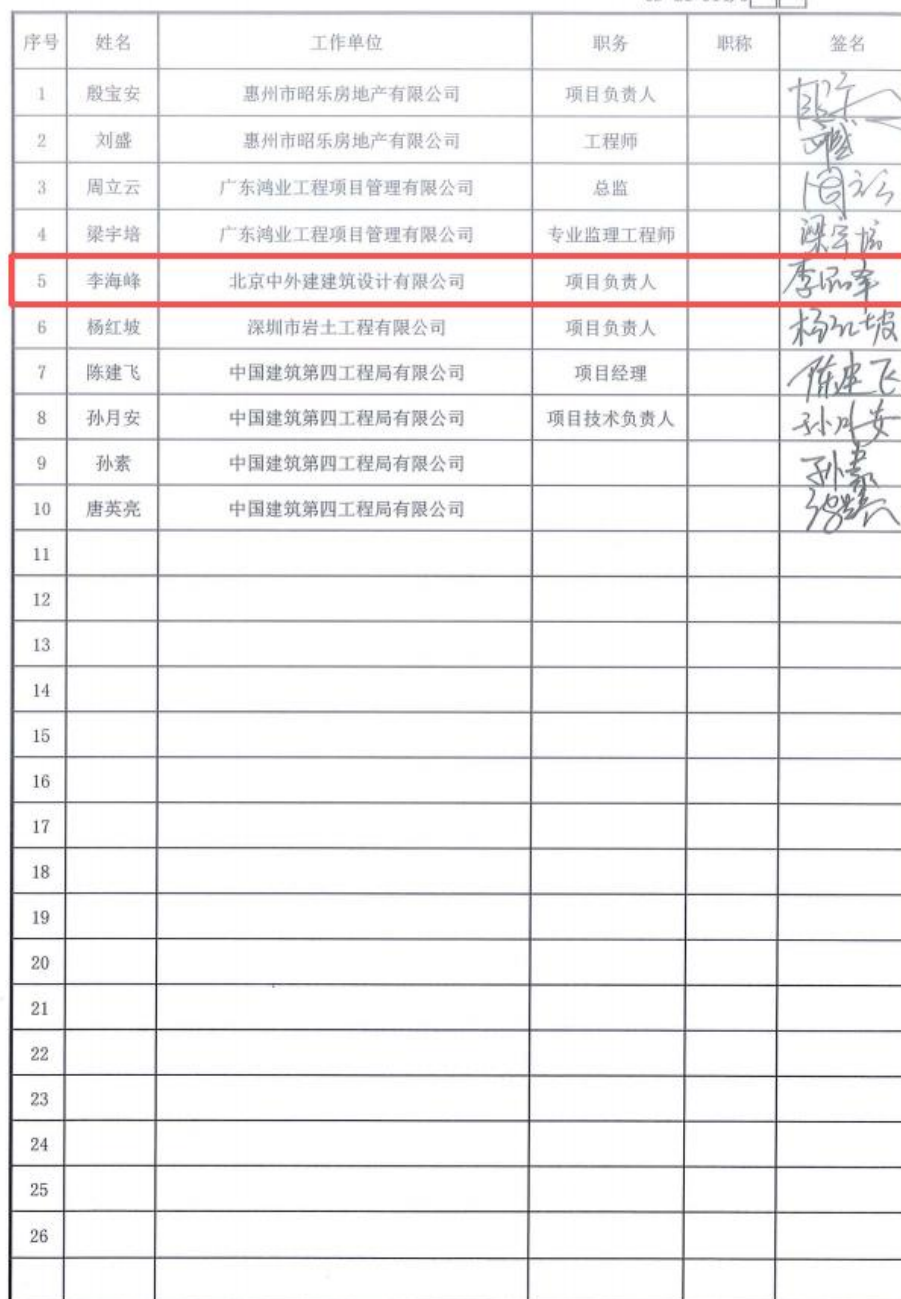 序号 姓名 工作单位 职务 职称 签名
1 殷宝安 惠州市昭乐房地产有限公司 项目负责人
2 刘盛 惠州市昭乐房地产有限公司 工程师
3 周立云 广东鸿业工程项目管理有限公司 总监
4 梁宇培 广东鸿业工程项目管理有限公司 专业监理工程师 梁宇培
5 李海峰 北京中外建建筑设计有限公司 项目负责人 李海峰
6 杨红坡 深圳市岩土工程有限公司 项目负责人 杨红坡
7 陈建飞 中国建筑第四工程局有限公司 项目经理 陈建飞
8 孙月安 中国建筑第四工程局有限公司 项目技术负责人 孙月安
9 孙素 中国建筑第四工程局有限公司 孙素
10 唐英亮 中国建筑第四工程局有限公司
11
12
13
14
15
16
17
18
19
20
21
22
23
24
25
26